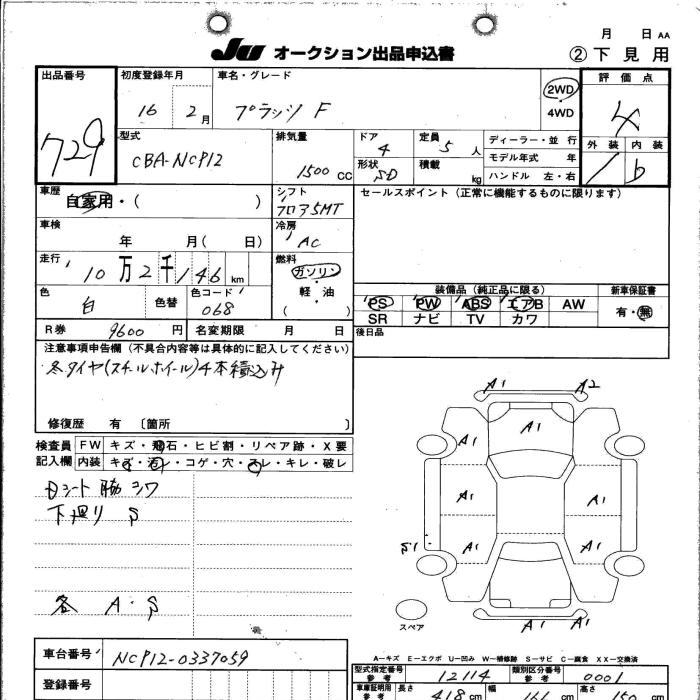 月 日 AA
JU オークション出品申込書 ②下見用
出品番号 初度登録年月 車名・グレード 評価点
729 16 2月 プラッツ F 2WD 4WD 4
型式 排気量 ドア 定員 ディーラー・並行 外装 内装
CBA-NCP12 1500 CC 4 5人 モデル年式 年
形状 積載 ハンドル 左・右
SD kg
車歴 シフト セールスポイント(正常に機能するものに限ります)
自家用・( ) フロア5MT
車検 冷房
年 月( 日) AC
走行 燃料
10万2千146km ガソリン・軽・油 ( )
色 色替 色コード 装備品(純正品に限る) 新車保証書
白 068 PS PW ABS エアB AW 有・無
SR ナビ TV カワ
R券 9600円 名変期限 月 日 後日品
注意事項申告欄(不具合内容等は具体的に記入してください)
冬タイヤ(スチールホイール)4本積込み
修復歴 有 〔箇所 〕
検査員記入欄 FW キズ・飛石・ヒビ割・リペア跡・X要
内装 キズ・汚レ・コゲ・穴・スレ・キレ・破レ
Dシート脇シワ
下廻り S
各 A・S
A1 A2
A1
A1
A1 A1
S1 A1 A1
A1 A1
スペア
A-キズ E-エクボ U-凹み W-補修跡 S-サビ C-腐食 XX-交換済
車台番号 NCP12-0337059
登録番号
型式指定番号 参考 12114 類別区分番号 参考 0001
車庫証明用 参考 長さ 418cm 幅 166cm 高さ 150cm